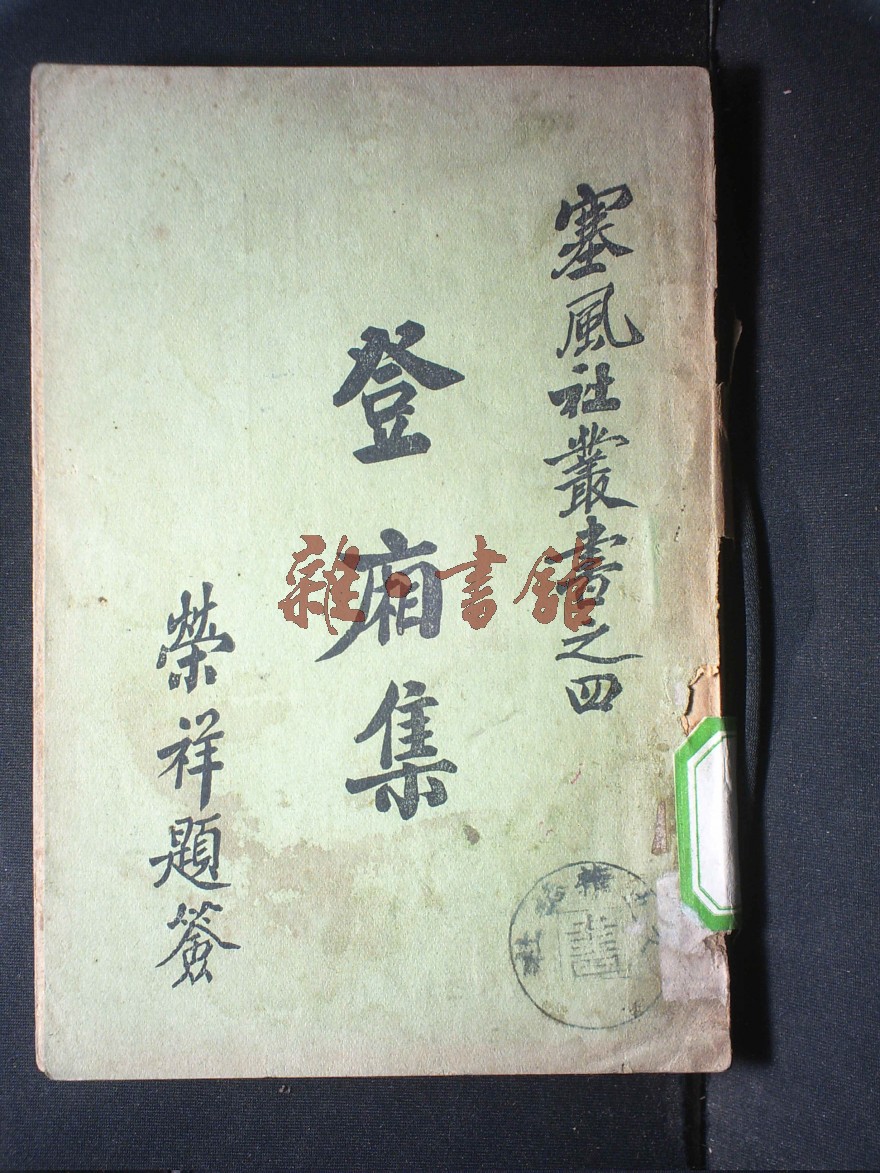 塞風社叢書之四
登廂集
榮祥題簽
雜·書館